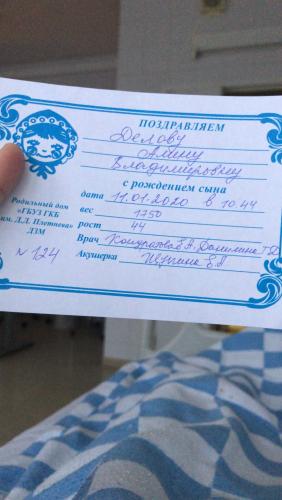 ПОЗДРАВЛЯЕМ
Делову
Алину
Владимировну
с рождением сына
дата 11.01.2020 в 10.44
вес 1250
рост 44
Врач
Акушерка
Родильный дом
«ГБУЗ ГКБ
им. Д.Д. Плетнева»
ДЗМ
N 124